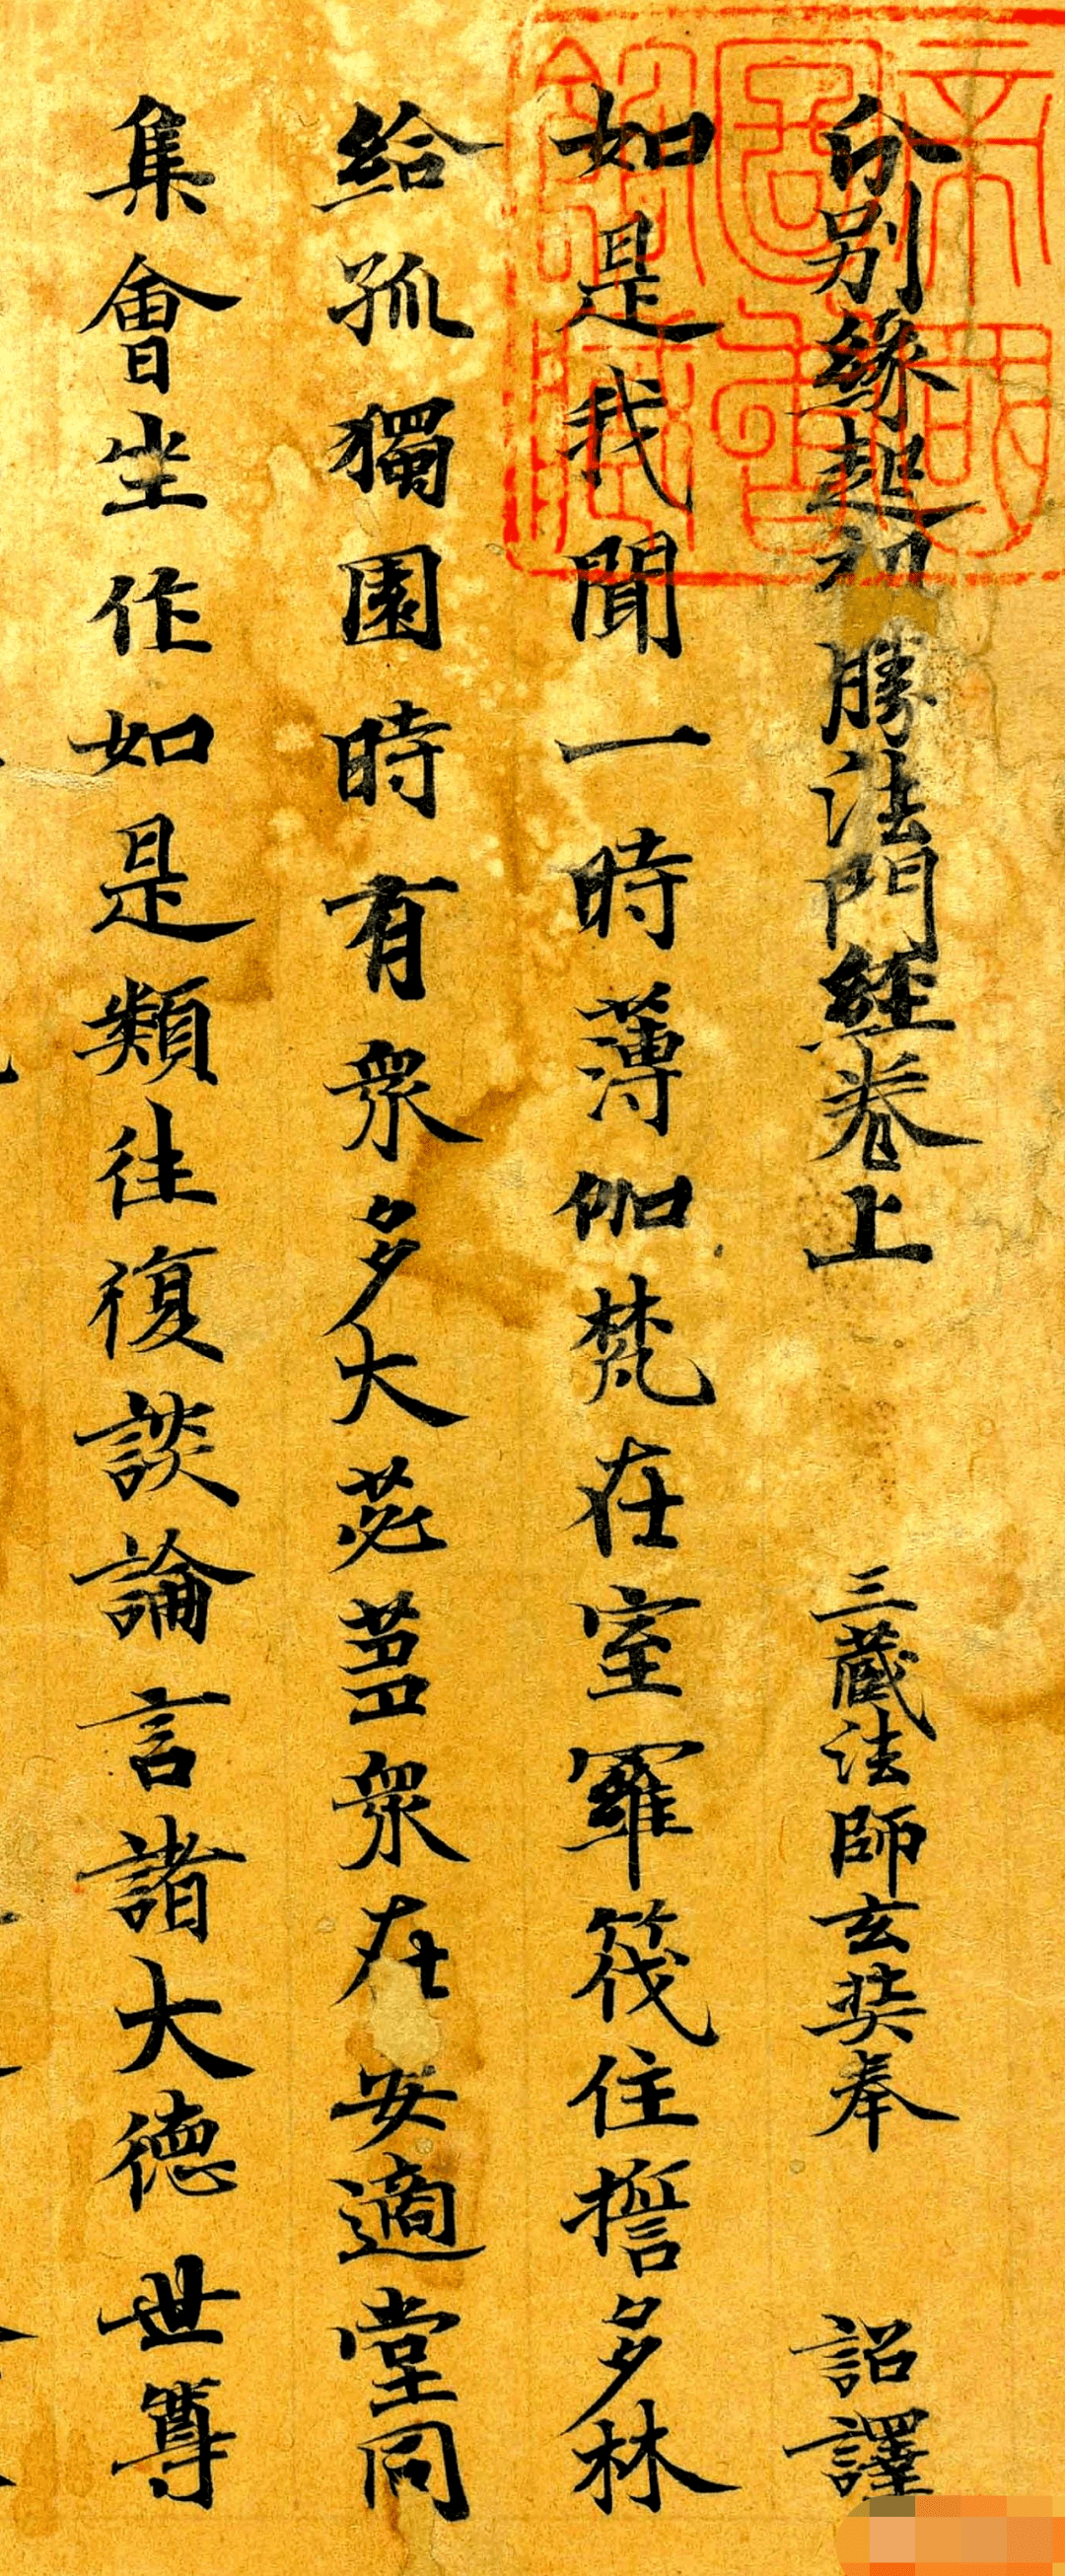 分別緣起初勝法門經卷上 三藏法師玄奘奉 詔譯
如是我聞一時薄伽梵在室羅筏住誓多林
給孤獨園時有眾多大苾芻眾在安適堂同
集會坐作如是類往復談論言諸大德世尊